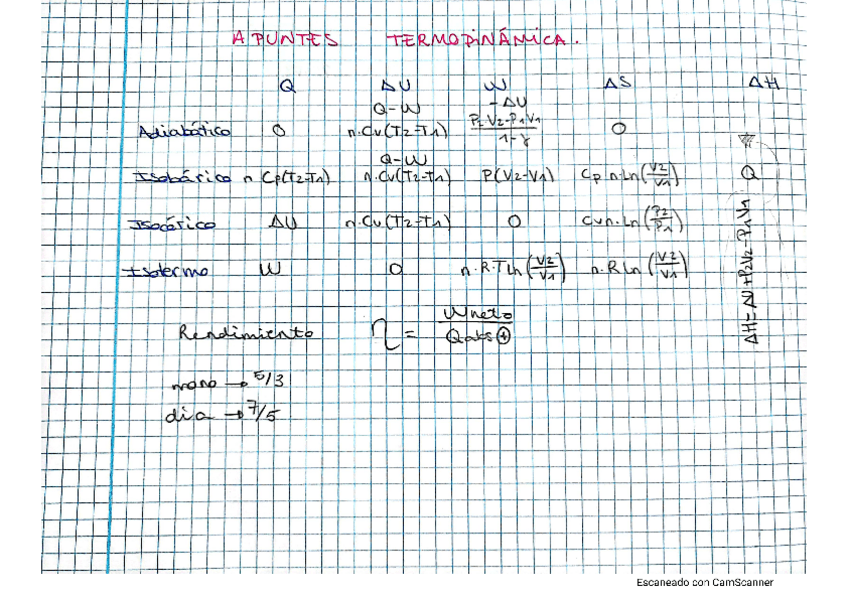 APUNTES TERMODINÁMICA.
Q ΔU W ΔS ΔH
Q-W -ΔU
Adiabático 0 n·Cv(T2-T1) P2V2-P1V1/1-γ 0
Q-W
Isobárico n Cp(T2-T1) n·Cv(T2-T1) P(V2-V1) Cp n·Ln(V2/V1) Q
Isocórico ΔU n·Cv(T2-T1) 0 Cvn·Ln(P2/P1)
Isotermo W 0 n·R·T Ln(V2/V1) n·R Ln(V2/V1)
ΔH=ΔU+P2V2-P1V1
Rendimiento η = Wneto/Qabs⊕
mono → 5/3
dia → 7/5
Escaneado con CamScanner